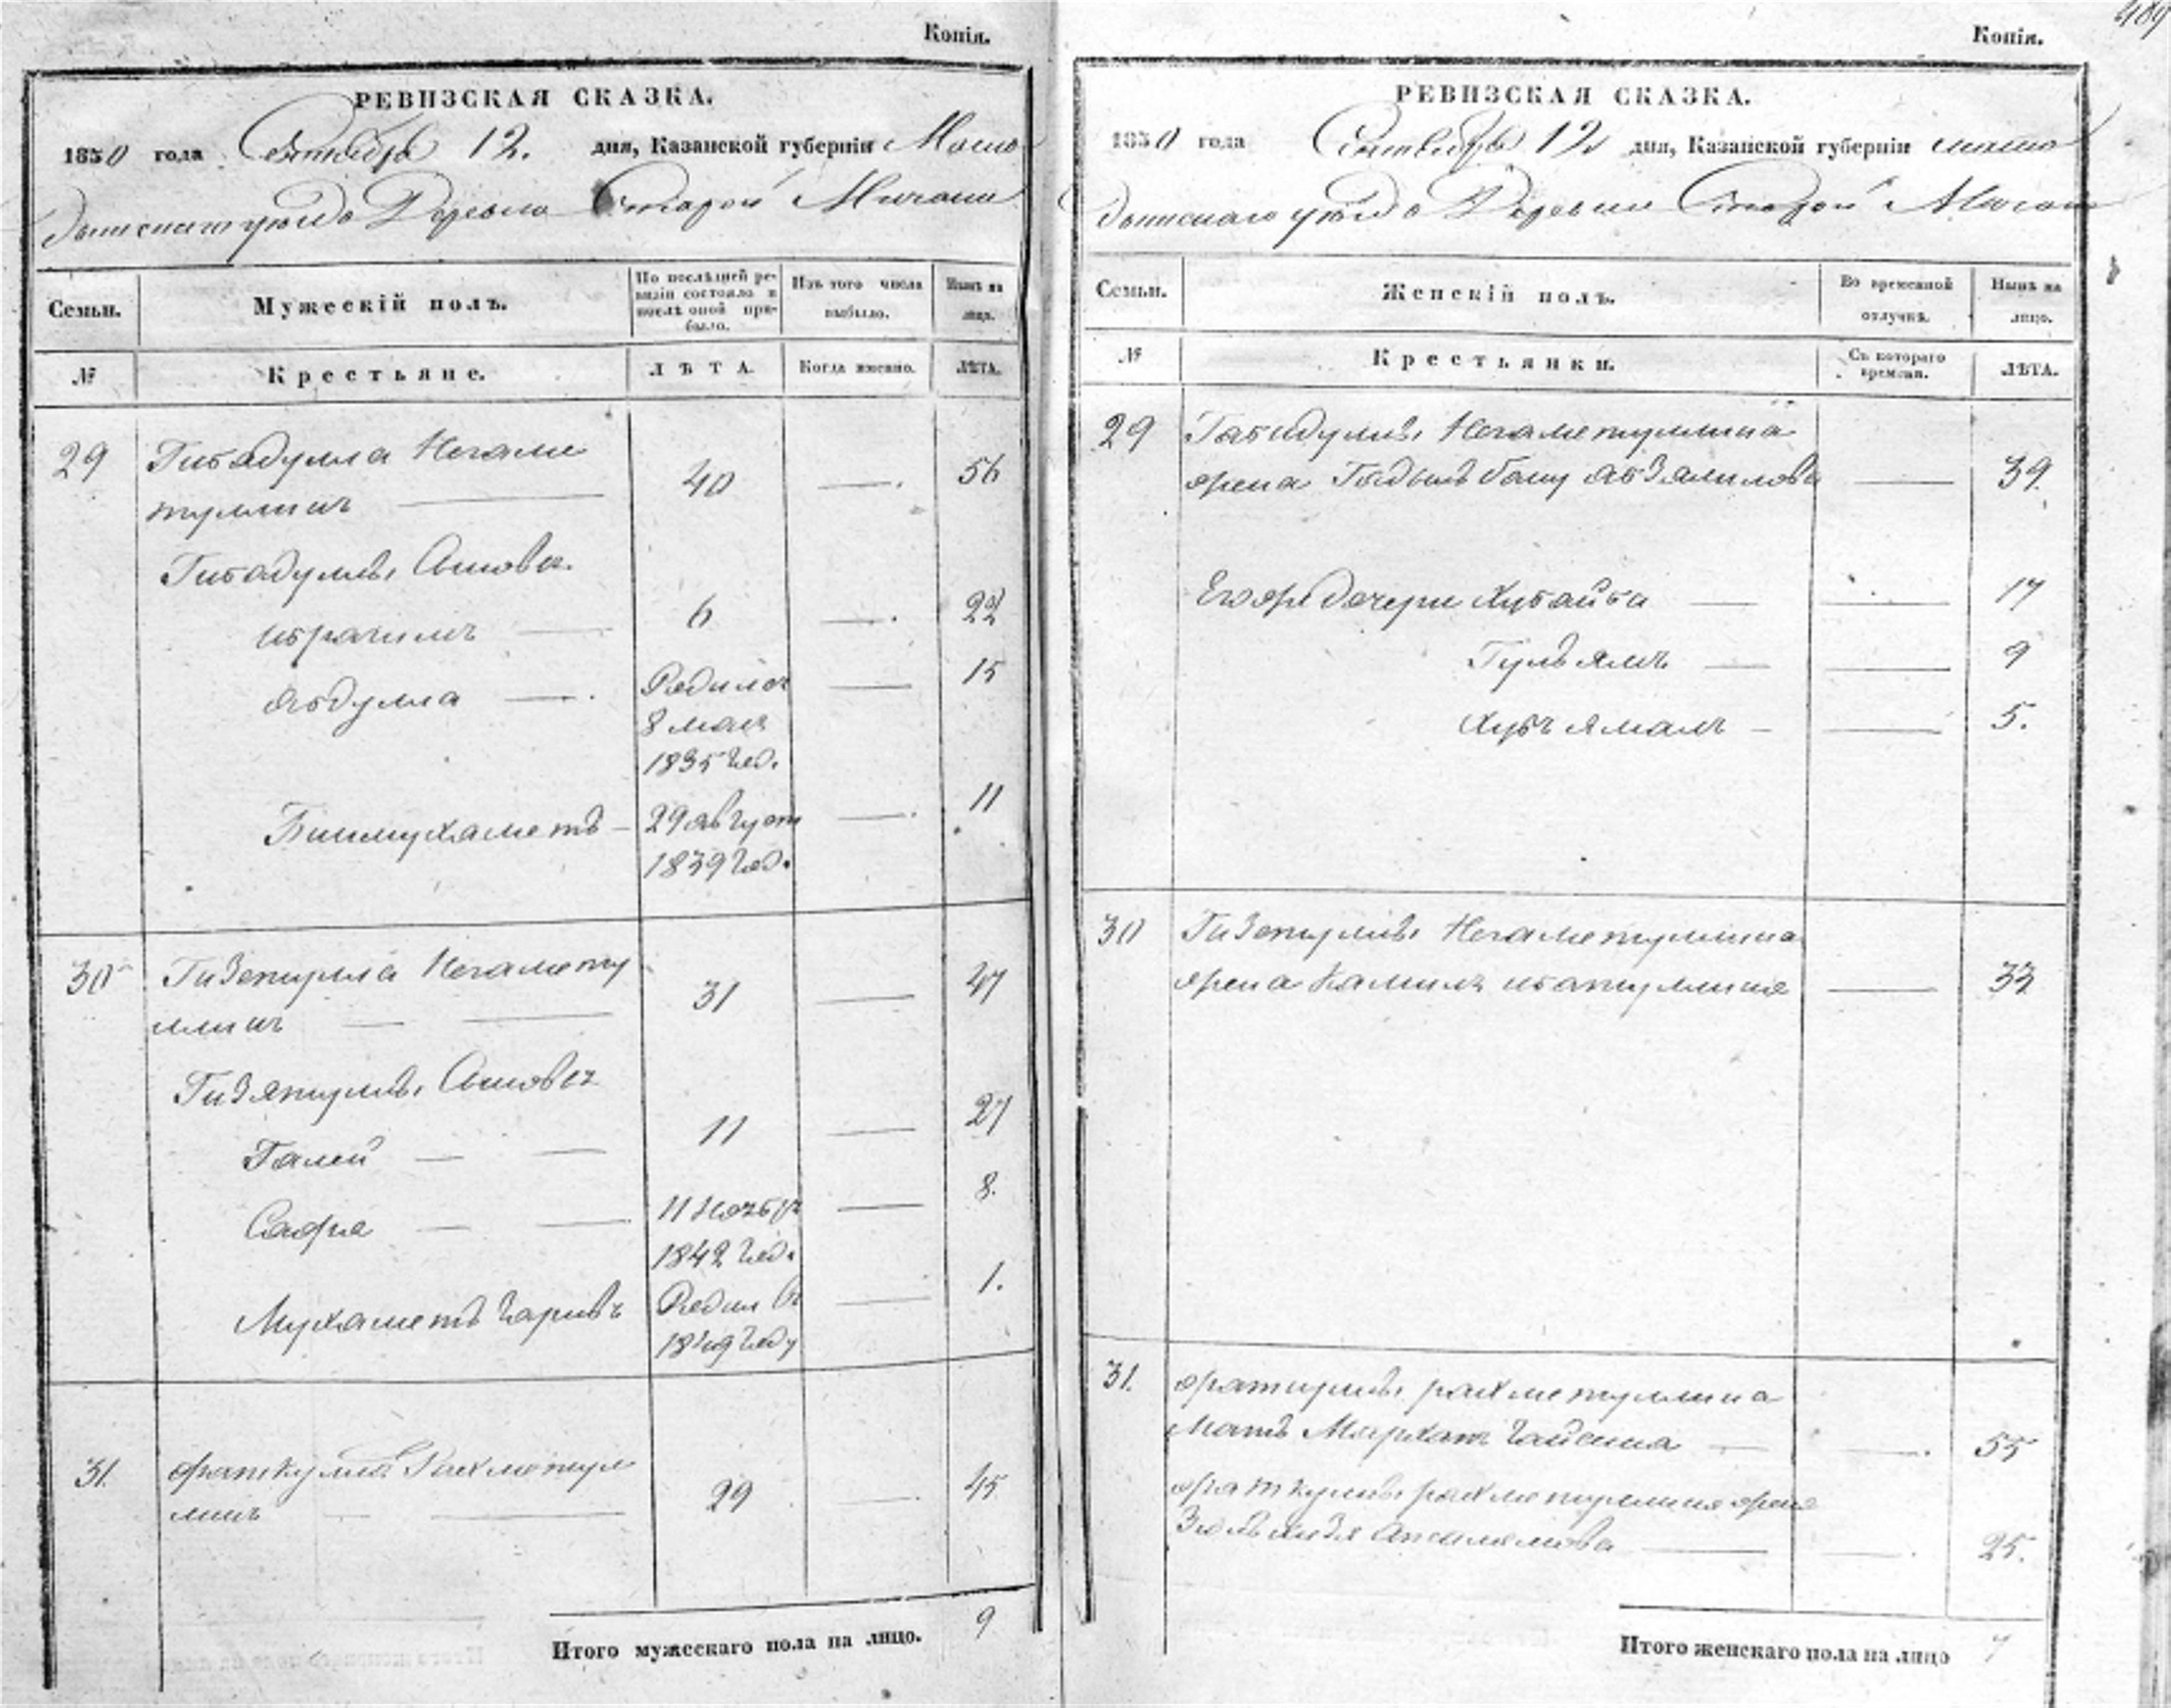 Копія.
РЕВИЗСКАЯ СКАЗКА.
1850 года Сентября 12. дня, Казанской губерніи Мама
дышскаго уѣзда Деревни Старой
Семьи.
Мужескій полъ.
По послѣдней ре-
визіи состояло и
послѣ оной при-
было.
Изъ того числа
выбыло.
Нынѣ на
лицо.
№
Крестьяне.
ЛѢТА.
Когда именно.
ЛѢТА.
29
Гибадулла Негаме
туллинъ
40
56
Гибадуллы Сыновья
Ибрагимъ
6
22
Абдулла
Родился
8 мая
1835 год.
15
Бикмухаметъ
29 август
1839 год.
11
30
Гизетулла Негамету
ллинъ
31
47
Гизятуллы Сыновья
Галей
11
27
Сафа
11 ноябр
1842 год.
8.
Мухаметъ Гарифъ
Родил въ
1849 году
1.
31.
Фаткулла Рахметул
линъ
29
45
Итого мужескаго пола на лицо.
9
489
Копія.
РЕВИЗСКАЯ СКАЗКА.
1850 года Сентября 12 дня, Казанской губерніи мама
дышскаго уѣзда Деревни Старой
Семьи.
Женскій полъ.
Во временной
отлучкѣ.
Нынѣ на
лицо.
№
Крестьянки.
Съ котораго
времени.
ЛѢТА.
29
Гибадуллы Негаметуллина
жена Абзялилова
39.
Его дочери Хубайба
17
Гульямъ
9
Хубъямалъ
5.
30
Гизетуллы Негаметуллина
жена Камиля
33
31.
Фаткуллы рахметуллина
Мать
55
Фаткуллы рахметуллина жена
25.
Итого женскаго пола на лицо
7